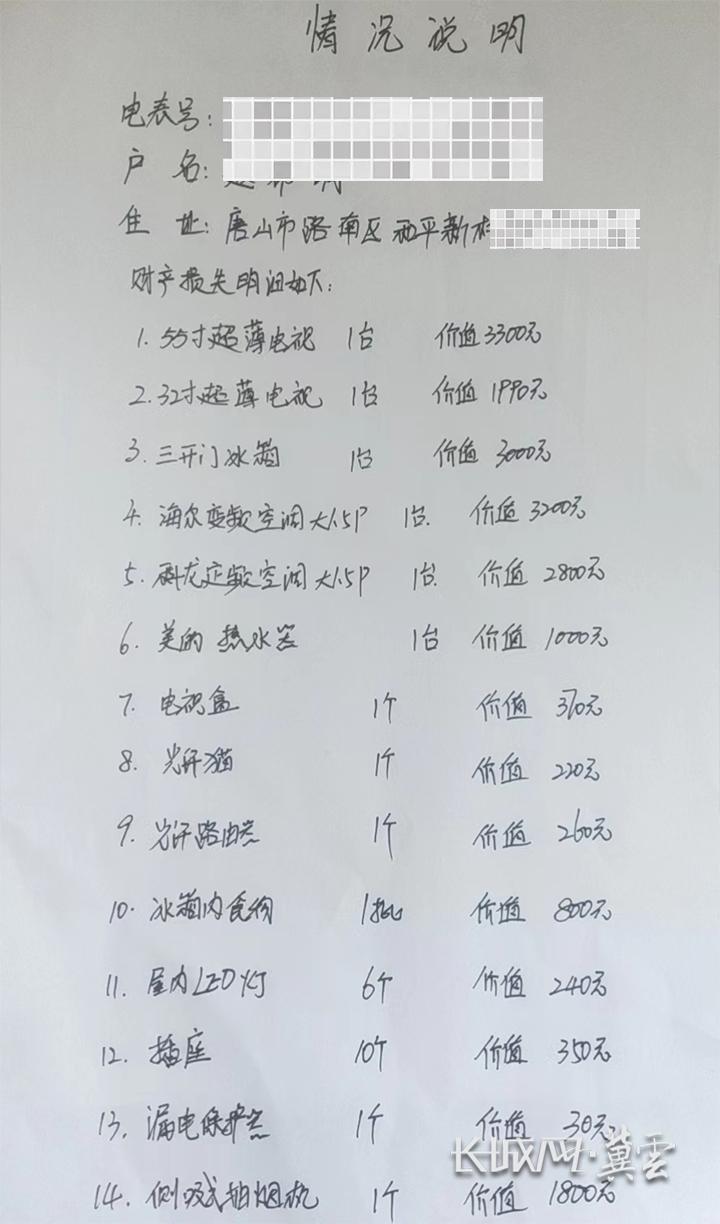 情况说明
电表号:
户 名:
住 址: 唐山市路南区和平新村
财产损失明细如下:
1. 55寸超薄电视 1台 价值3300元
2. 32寸超薄电视 1台 价值1990元
3. 三开门冰箱 1台 价值3000元
4. 海尔变频空调大1.5P 1台. 价值3200元
5. 科龙定频空调大1.5P 1台. 价值2800元
6. 美的热水器 1台 价值1000元
7. 电视盒 1个 价值370元
8. 光纤猫 1个 价值220元
9. 光纤路由器 1个 价值260元
10. 冰箱内食物 1批 价值800元
11. 屋内LED灯 6个 价值240元
12. 插座 10个 价值350元
13. 漏电保护器 1个 价值30元
14. 侧吸式抽烟机 1个 价值1800元
冀云